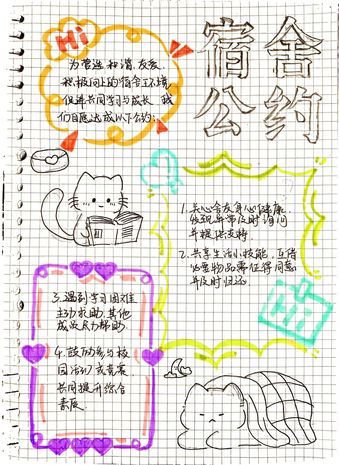 Hi
宿舍
公约
为营造和谐、友爱、
积极向上的宿舍环境,
促进共同学习与成长,我
们自愿达成以下公约:
1.关心舍友身心健康,
发现异常及时询问
并提供支持
2.共享生活小技能,互借
必要物品需征得同意
并及时归还
Hi
3.遇到学习困难
主动求助,其他
成员尽力帮助.
4.鼓励参与校
园活动或竞赛,
共同提升综合
素质.